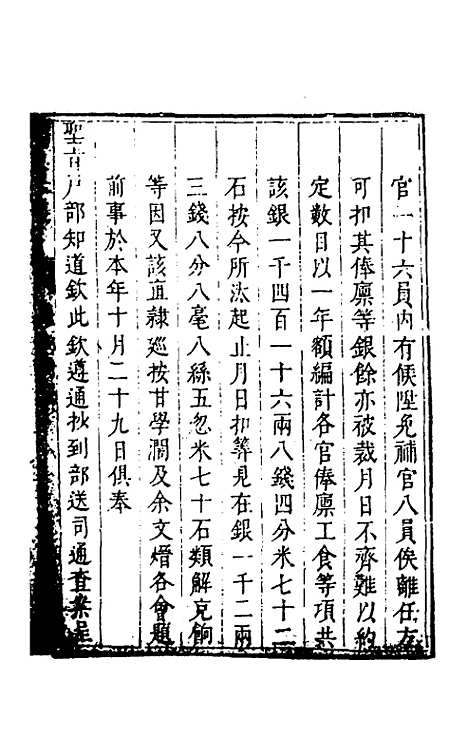 官一十六員內有候陞免補官八員俟離任方
可扣其俸廩等銀餘亦被裁月日不齊難以約
定數目以一年額編計各官俸廩工食等項共
該銀一千四百一十六兩八錢四分米七十二
石按今所汰起止月日扣筭見在銀一千二兩
三錢八分八毫八絲五忽米七十石類解充餉
等因又該直隸廵按甘學濶及余文熠各會題
前事於本年十月二十九日俱奉
聖旨戶部知道欽此欽遵通抄到部送司通查案呈